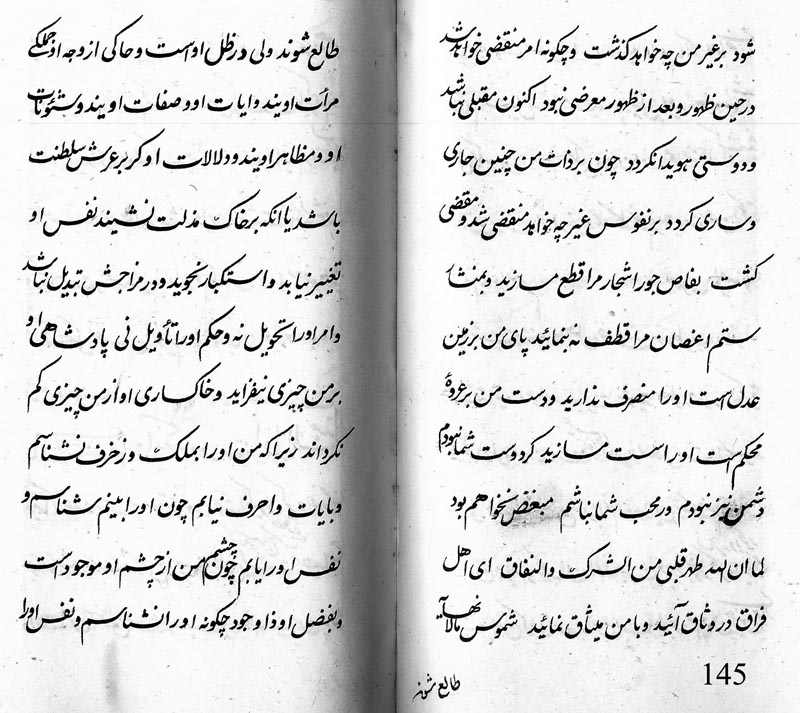 شود بر غیر من چه خواهد گذشت و چگونه امر منقضی خواهد شد
در حین ظهور و بعد از ظهور معرضی نبود اکنون مقبلی نباشد
و دوستی هویدا نکردد چون بر ذات من چنین جاری
و ساری کردد بر نفوس غیر چه خواهد منقضی شد و مقضی
کشت بفاص جور اشجار مرا قطع مسازید و بمنشار
ستم اغصان مرا قطف نه بنمائید پای من بر زمین
عدل است او را منصرف مدارید و دست من بر عروهٔ
محکم است او را سست مسازید کر دوست شما نبودم
دشمن نیز نبودم ور محب شما نباشم مبغض نخواهم بود
لما ان الله طهر قلبی من الشرک والنفاق ای اهل
فراق در وثاق آئید و با من میثاق نمائید شموس لانهایه
طالع شوند
145
طالع شوند ولی در ظل او است و حاکی از وجه او جملکی
مرآت اویند و ایات او و صفات اویند و شئونات
او و مظاهر اویند و دلالات او کر بر عرش سلطنت
باشد یا انکه بر خاک مذلت نشیند نفس او
تغییر نیابد و استکبار نجوید و در مزاجش تبدیل نباشد
و امر او را تحویل نه و حکم او را تأویل نی پادشاهی او
بر من چیزی نیفزاید و خاکساری او از من چیزی کم
نکرداند زیرا که من او را بملک و زخرف نشناسم
و بایات و احرف نیابم چون او را بینم شناسم و
نفس او را یابم چون چشم من از چشم او موجود است
و بفضل او ذا وجود چکونه او را نشناسم و نفس او را